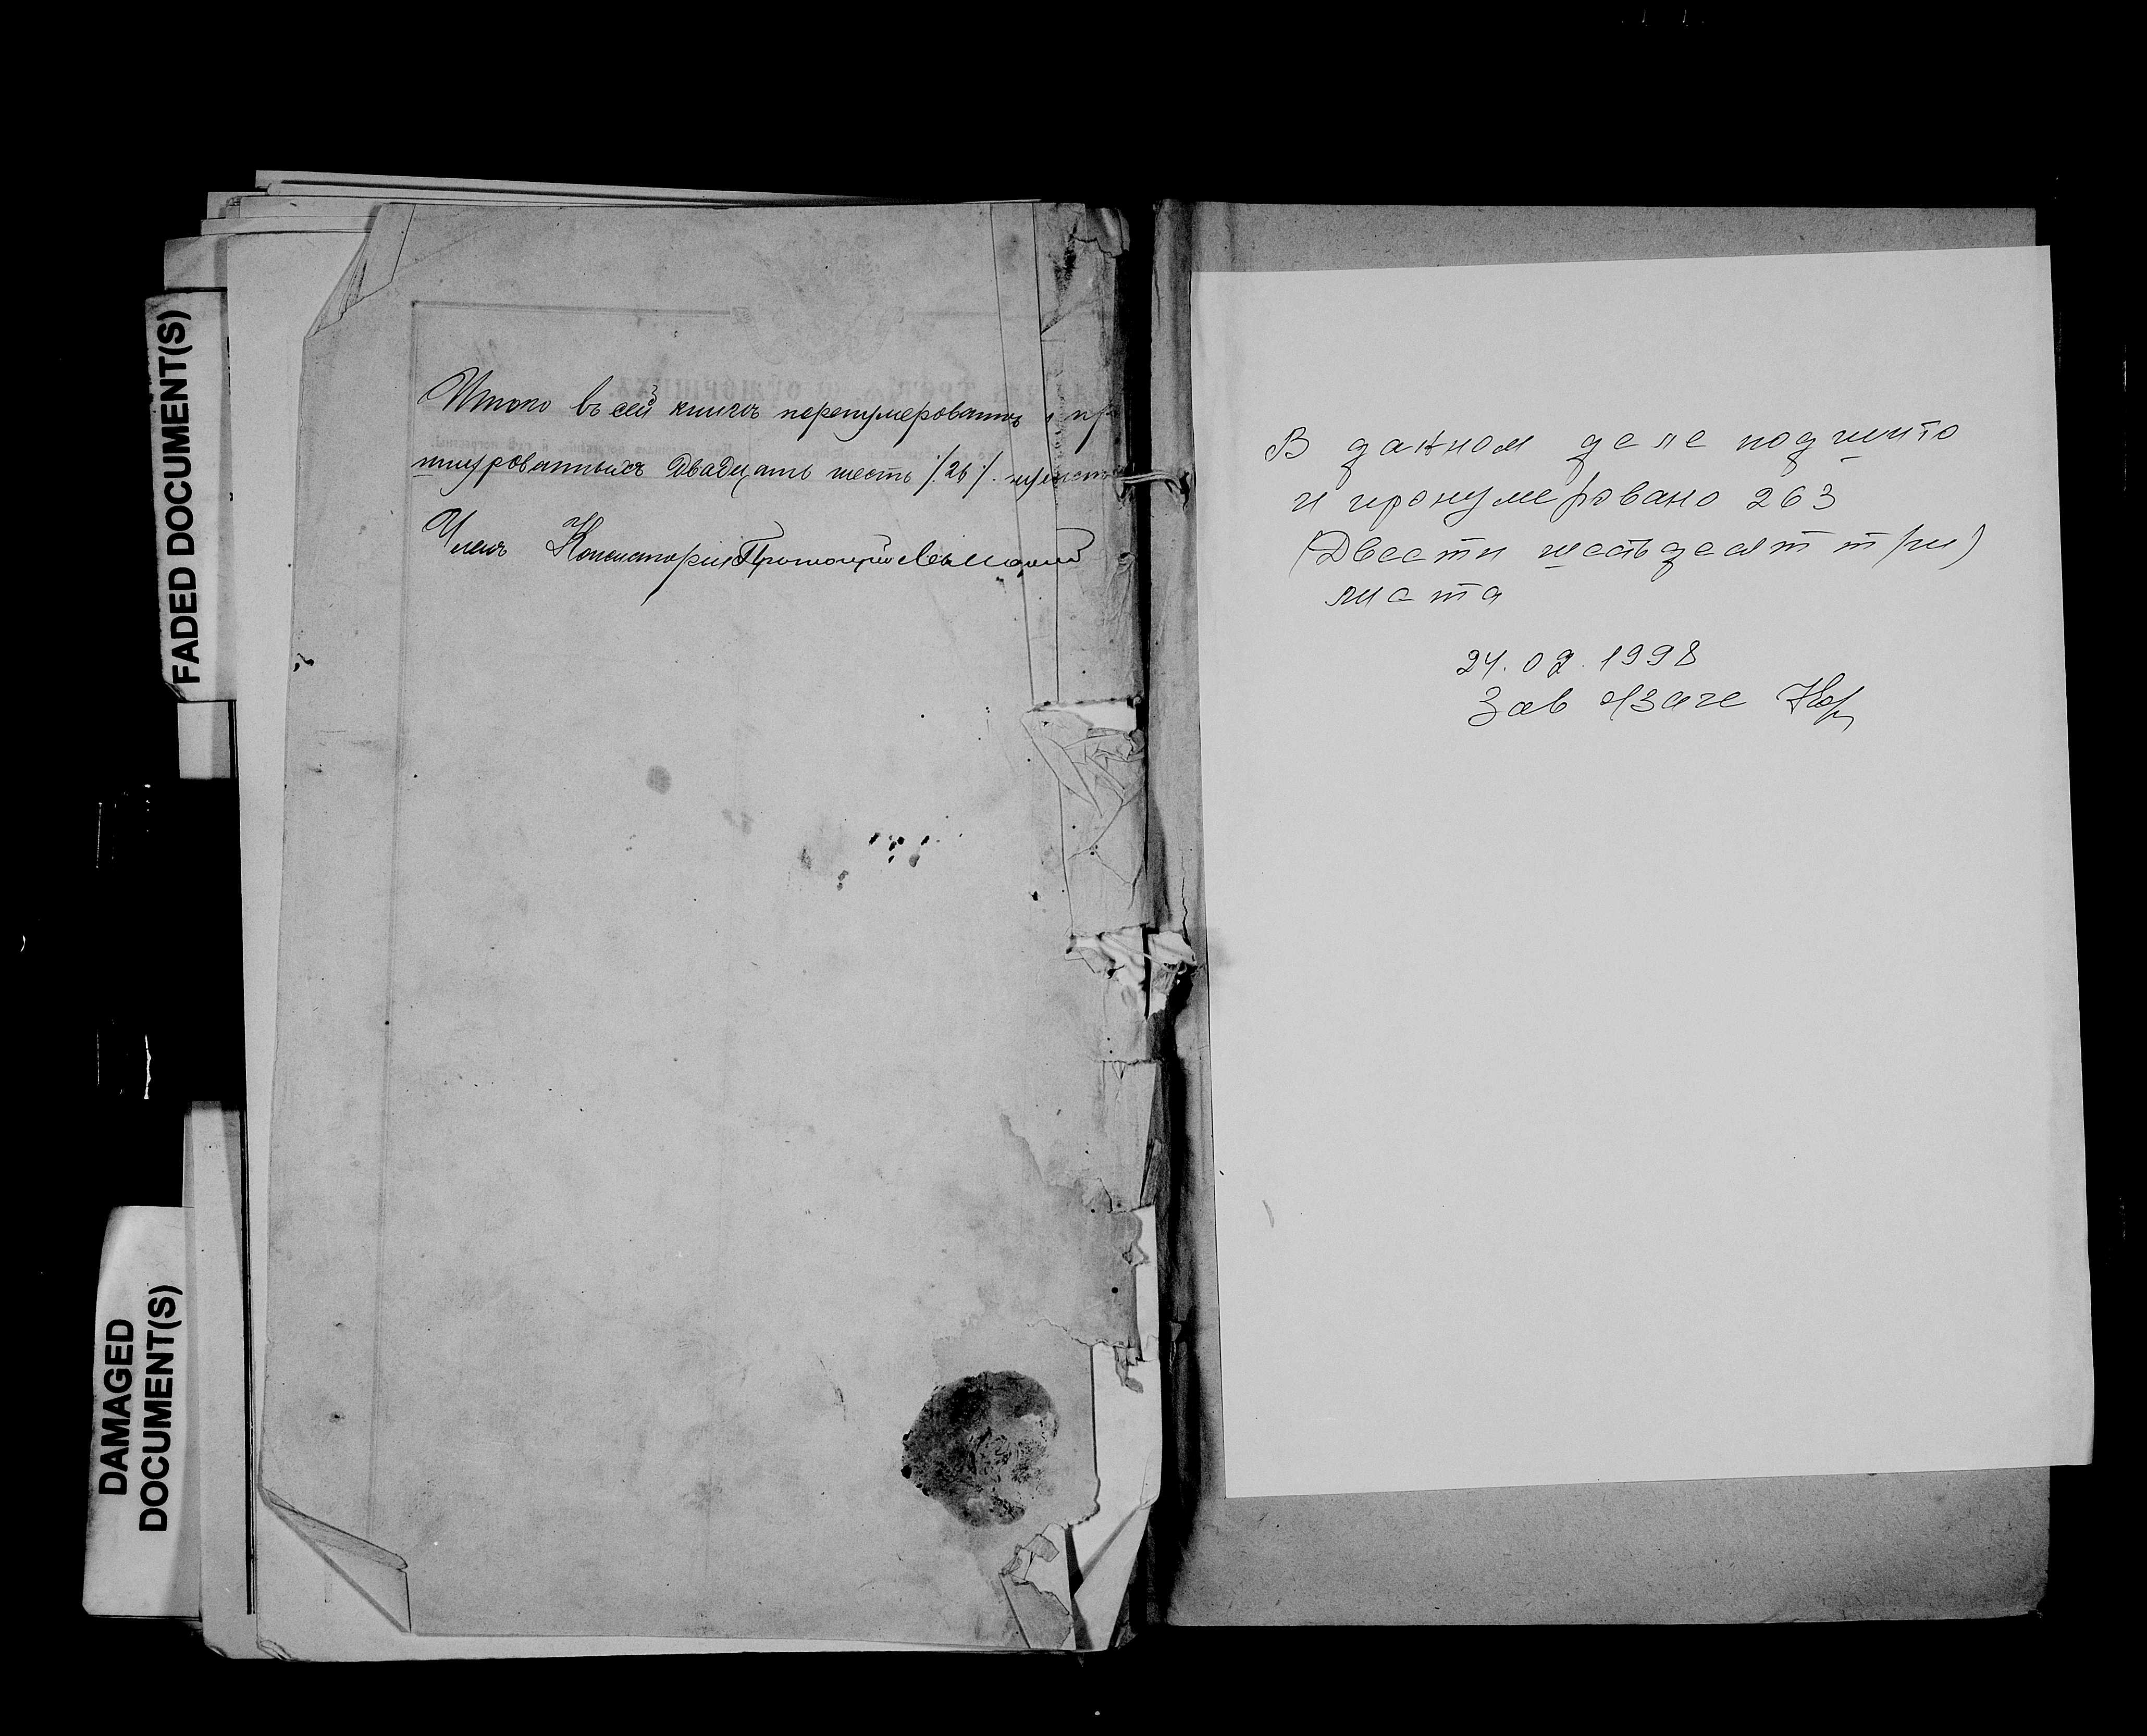 FADED DOCUMENT(S)
DAMAGED
DOCUMENT(S)
Итого въ сей книгѣ перенумерованныхъ и пр
шнурованныхъ двадцать шесть /.26./
Членъ Консисторіи Протоіерей
В данном деле подшито
и пронумеровано 263
(Двести шестьдесят три)
листа
24.02.1998
Зав